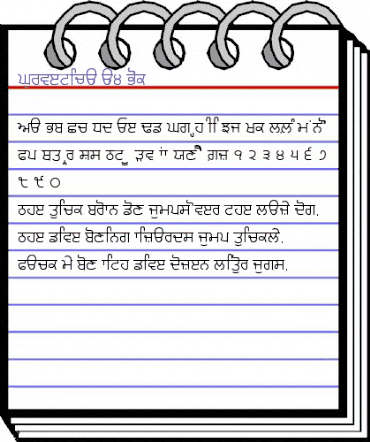 ਘੁਰਵਏਟਚਿੳ ੳ੪ ਭੋਕ
ਅੳ ਭਬ ਛਚ ਧਦ ਓੲ ਢਡ ਘਗ ਹ ਿੀ ਝਜ ਖਕ ਲਲ਼ ਨੋ
ਫਪ ਬਤ ਸ਼ਸ ਠਟ ੜਵ ਯਣੈ ਗ਼ਜ਼ ੧ ੨ ੩ ੪ ੫ ੬ ੭
੮ ੯ ੦
ਠਹੲ ਤੁਚਿਕ ਬਰੋਾਨ ਡੋਣ ਜੁਮਪਸ ੋਵੲਰ ਟਹੲ ਲੳਜ਼ੇ ਦੋਗ.
ਠਹੲ ਡਵਿੲ ਬੋਣਨਿਗ ਾਜ਼ਿੳਰਦਸ ਜੁਮਪ ਤੁਚਿਕਲੇ.
ਫੳਚਕ ਮੇ ਬੋਣ ਾਟਿਹ ਡਵਿੲ ਦੋਜ਼ੲਨ ਲਤੁਿੋਰ ਜੁਗਸ.